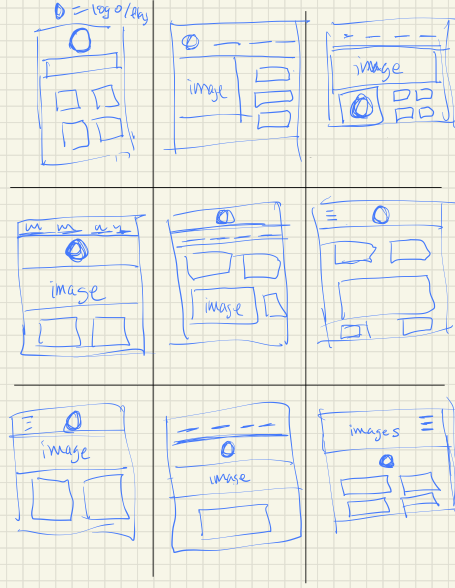 = logo/
image
image
image
image
image
image
images